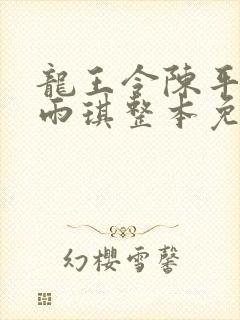 龍王令陳平
雨琪整本免
幻櫻雪馨